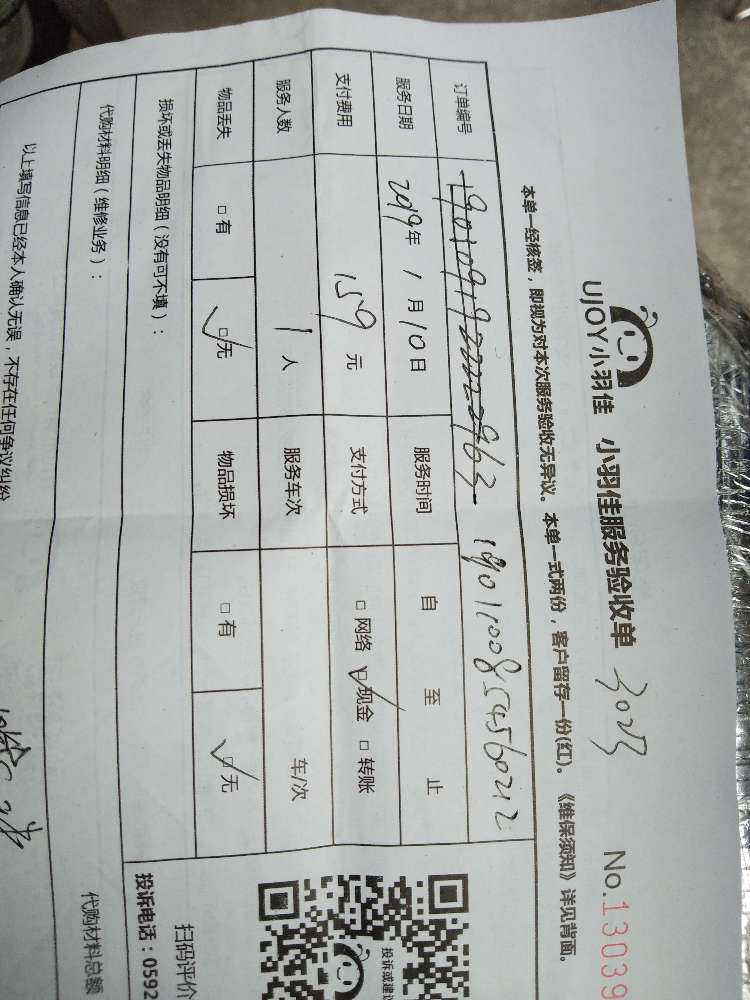 UJOY小羽佳 小羽佳服务验收单 No.13039
本单一经核签，即视为对本次服务验收无异议。本单一式两份，客户留存一份(红)。《维保须知》详见背面。
订单编号 1901100854560212
服务日期 2019年1月10日 服务时间 自 至 止
支付费用 159元 支付方式 □网络 ☑现金 □转账
服务人数 1人 服务车次 车/次
物品丢失 □有 ☑无 物品损坏 □有 ☑无
损坏或丢失物品明细（没有可不填）：
代购材料明细（维修业务）： 代购材料总额
以上填写信息已经本人确认无误，不存在任何争议纠纷
投诉或建议
扫码评价
投诉电话：0592